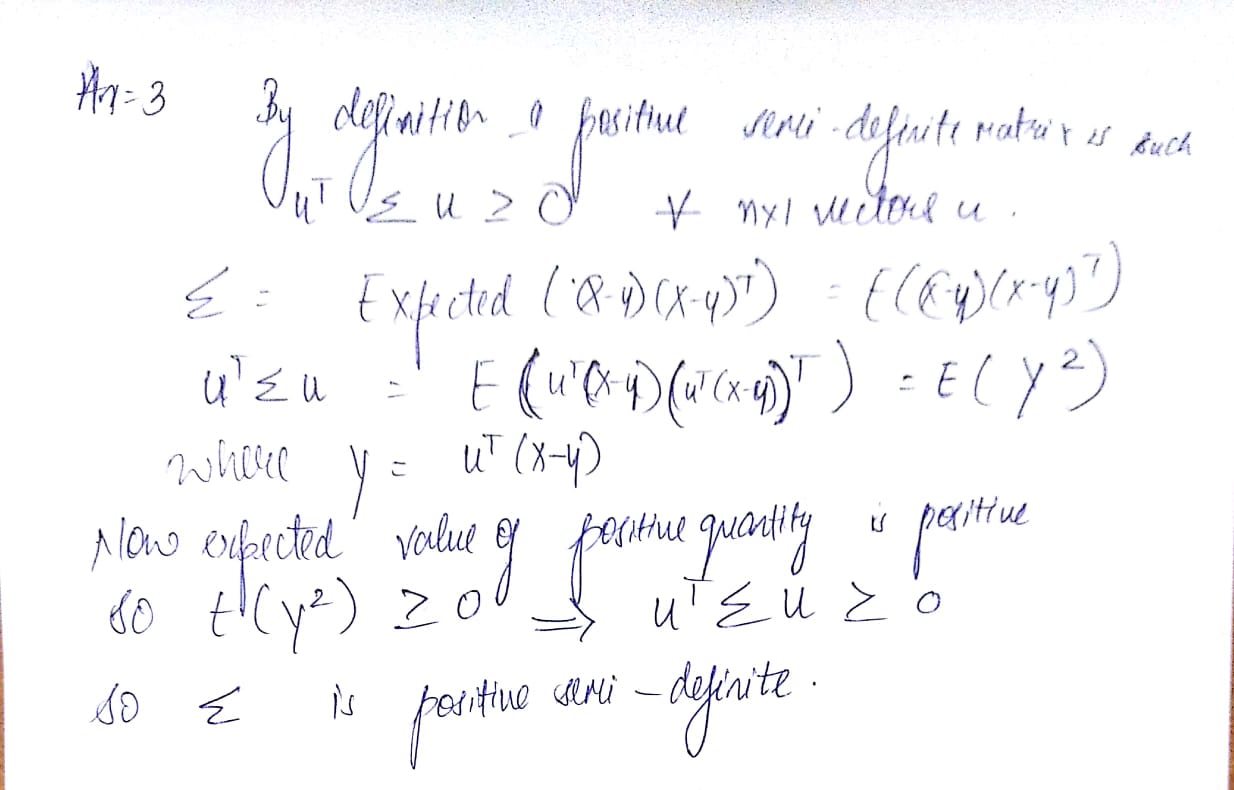 An=3 By definition a positive semi-definite matrix is such
uᵀ Σ u ≥ 0 ∀ n×1 vectors u.
Σ = Expected ((x-y)(x-y)ᵀ) = E((x-y)(x-y)ᵀ)
uᵀΣu = E(uᵀ(x-y)(uᵀ(x-y))ᵀ) = E(y²)
where y = uᵀ(x-y)
Now expected value of positive quantity is positive
so E(y²) ≥ 0 ⟹ uᵀΣu ≥ 0
so Σ is positive semi-definite.